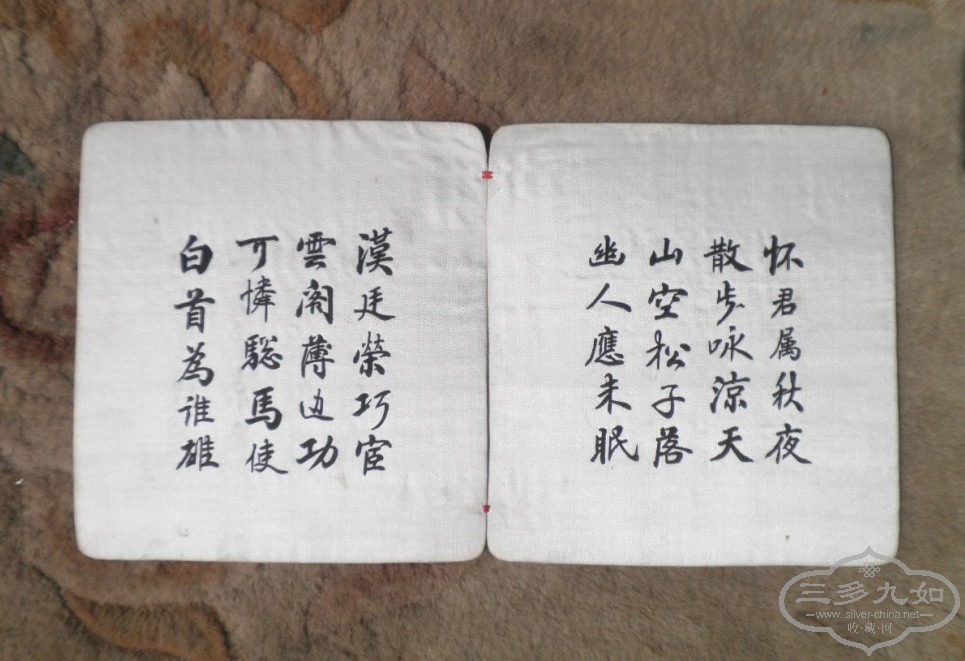 怀君属秋夜
散步咏凉天
山空松子落
幽人應未眠
漢廷榮巧宦
雲閣薄边功
可憐驄馬使
白首為谁雄
三多九如
www.silver-china.net
收·藏·网